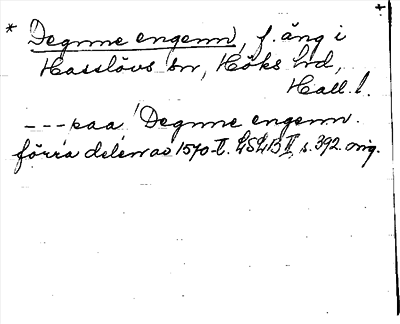 * Degnne engenn, f. äng i
Hasslövs sn, Höks hd,
Hall. l.
---paa Degnne engenn.
förra delen av 1570-t. LSLB II, s. 392. orig.